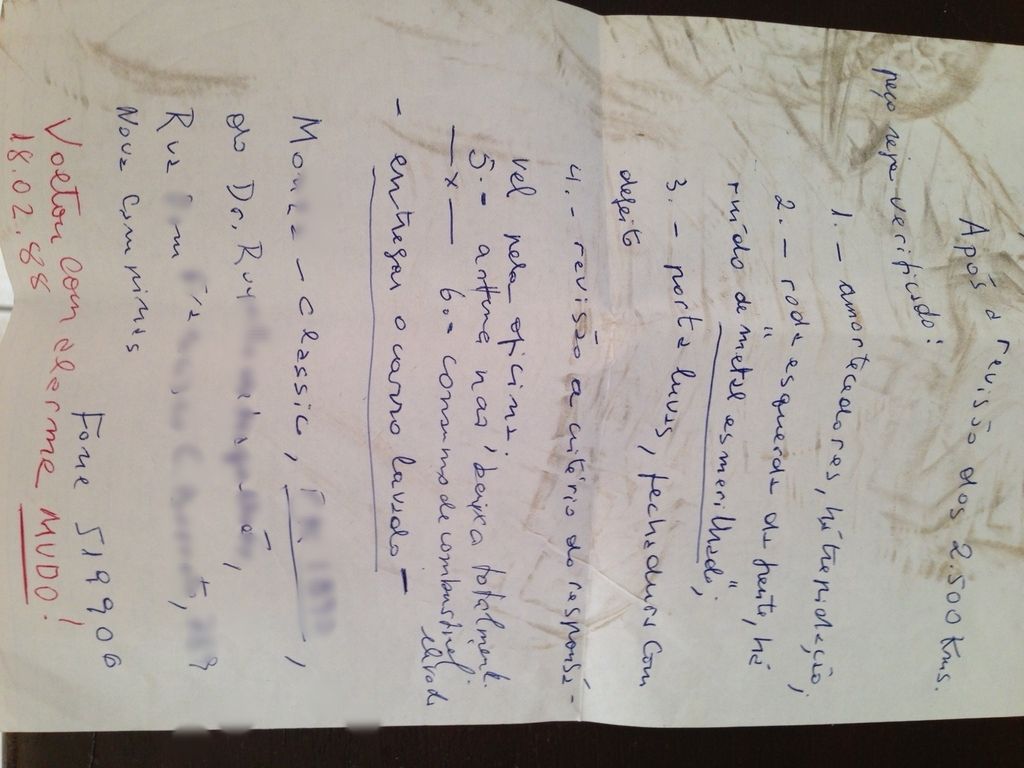 Após a revisão dos 2.500 Kms.
peço seja verificado:
1.- amortecedores, há trepidação;
2.- roda esquerda da frente, há
ruído de "metal esmerilhado";
3.- porta luvas, fechadura com
defeito
4.- revisão a critério do responsá-
vel pela oficina;
5.- antena não baixa totalment.
—x— 6.- consumo de combustível
elevado
- entregar o carro lavado -
Monza - classic,
do Dr. Ruy
Rua
Nova Campinas
Fone 519906
Voltou com alarme MUDO!
18.02.88